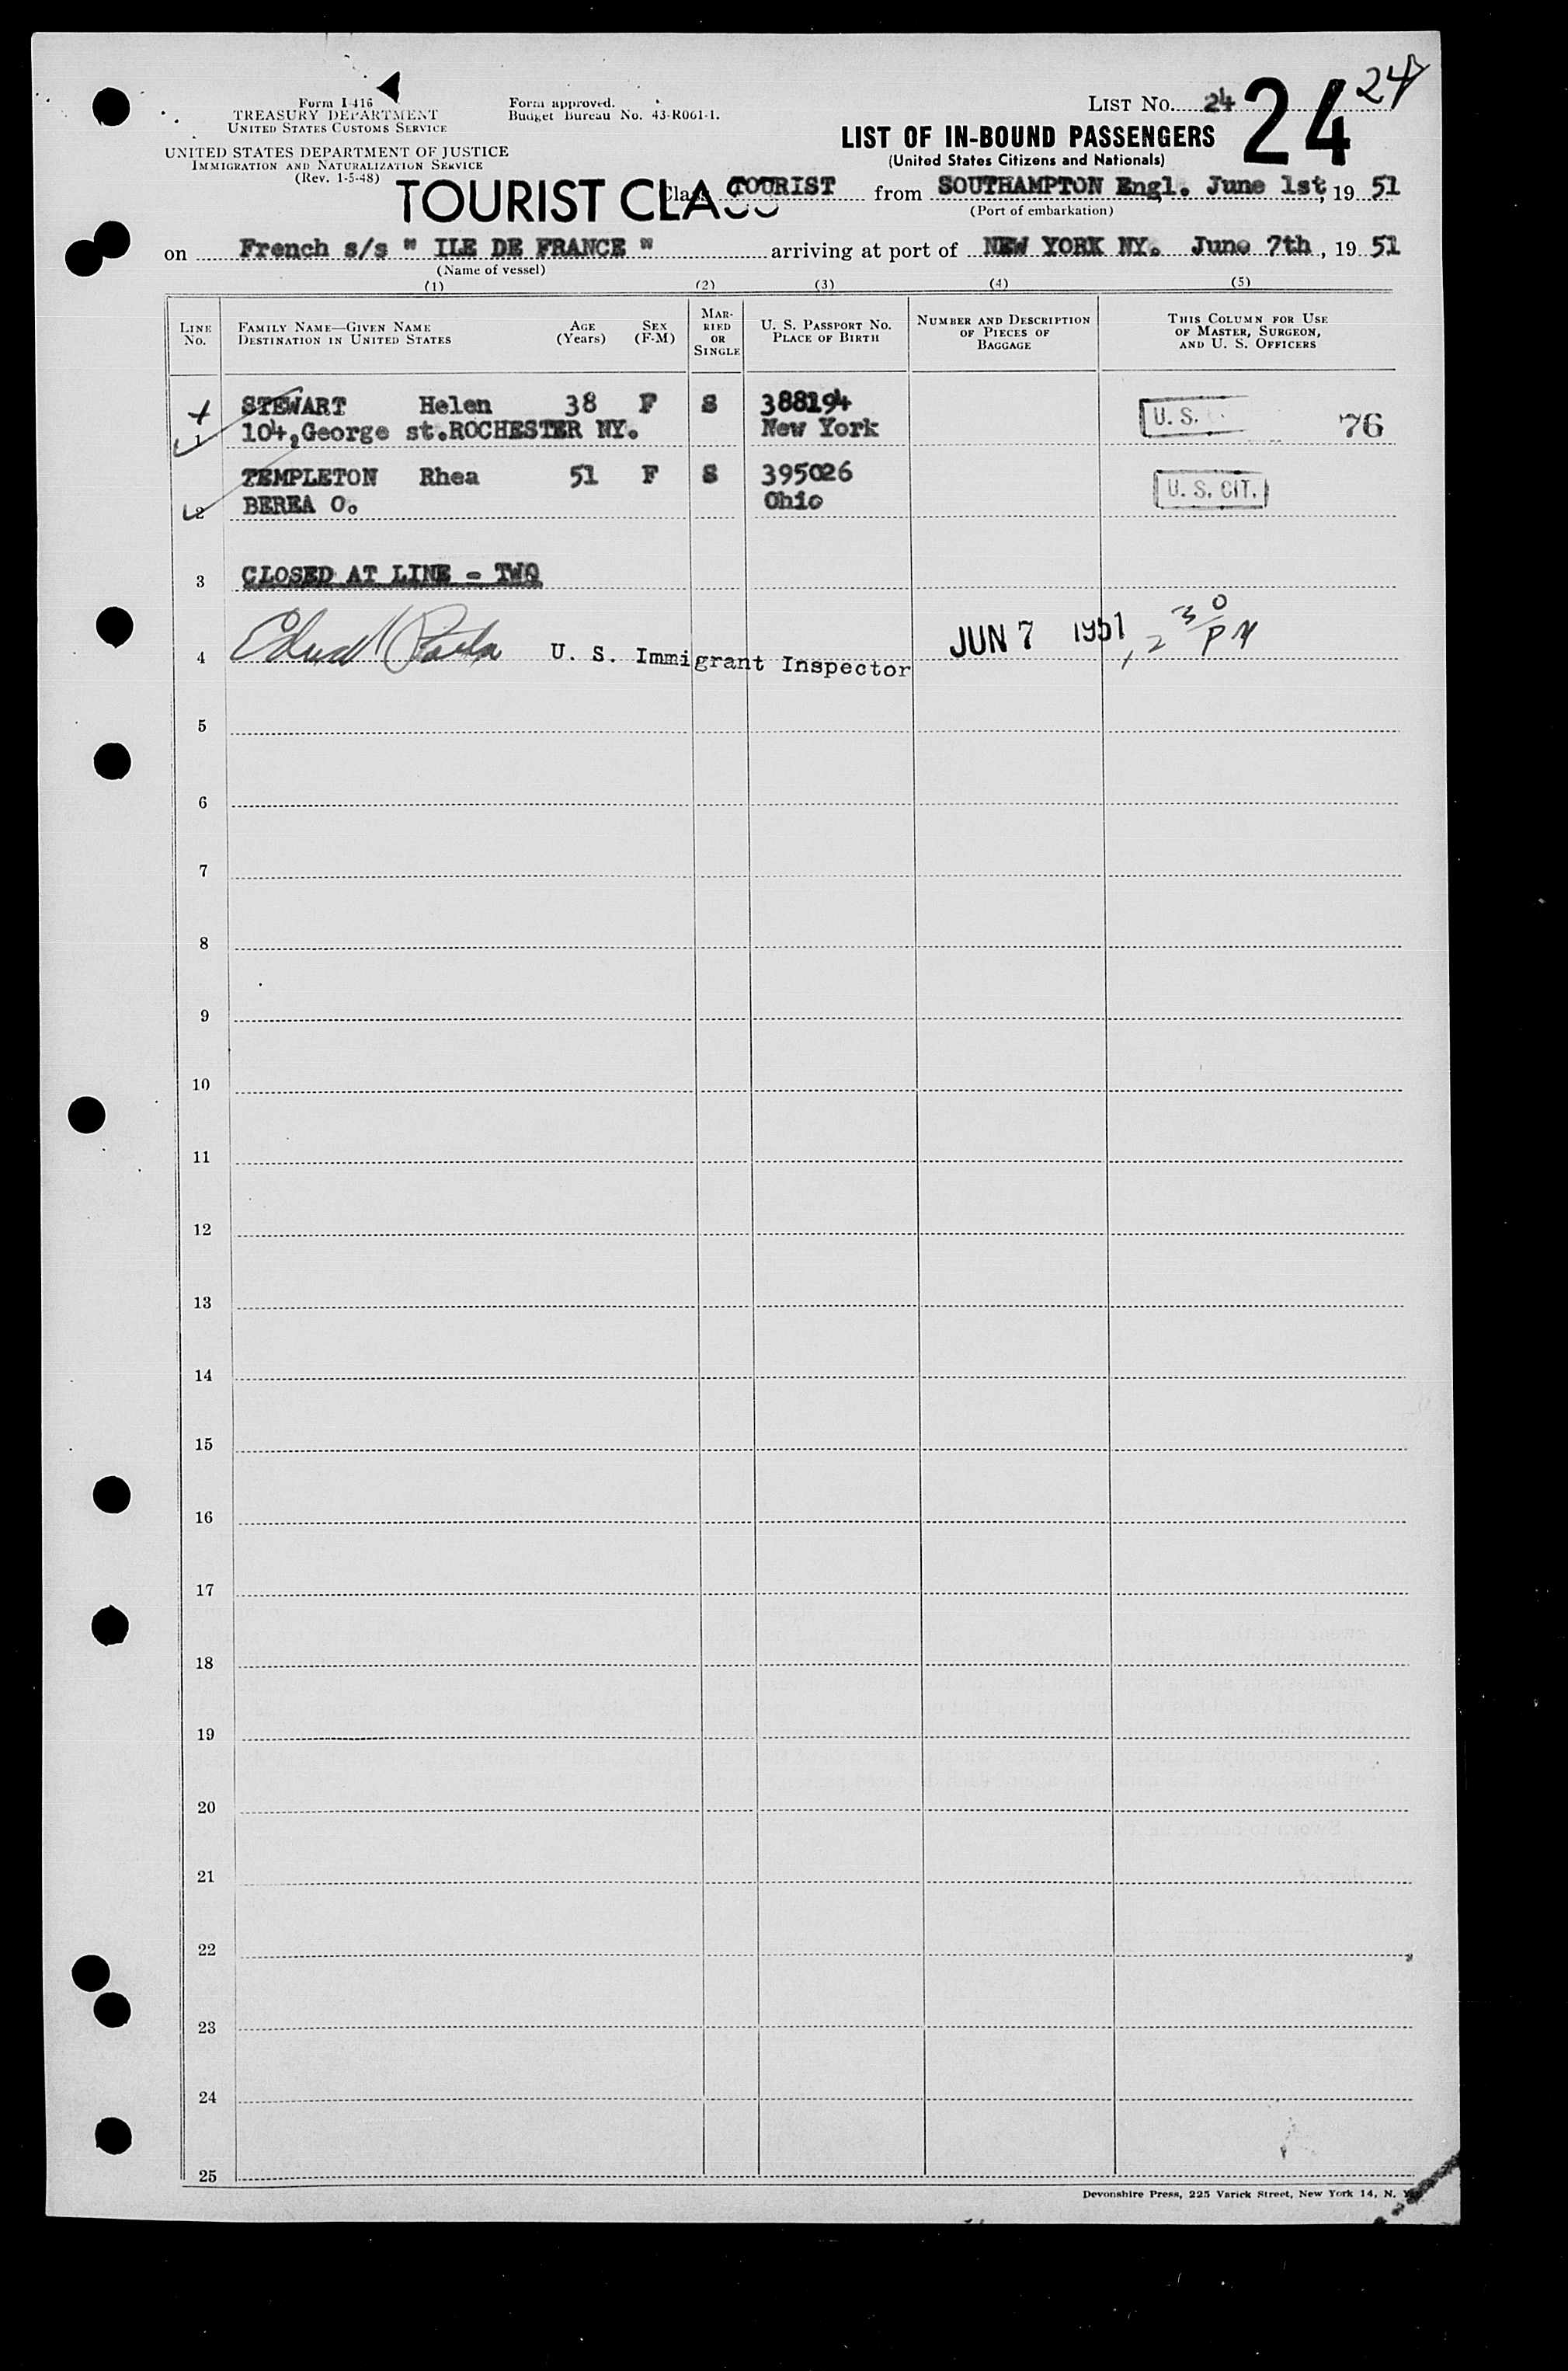 24
Form I-416
TREASURY DEPARTMENT
UNITED STATES CUSTOMS SERVICE
UNITED STATES DEPARTMENT OF JUSTICE
IMMIGRATION AND NATURALIZATION SERVICE
(Rev. 1-5-48)
Form approved.
Budget Bureau No. 43-R061-1.
LIST NO. 24
24
LIST OF IN-BOUND PASSENGERS
(United States Citizens and Nationals)
TOURIST CLASS
Class TOURIST from SOUTHAMPTON Engl. June 1st, 19 51
(Port of embarkation)
on French s/s " ILE DE FRANCE " arriving at port of NEW YORK NY. June 7th, 19 51
(Name of vessel)
(1) (2) (3) (4) (5)
LINE No. FAMILY NAME—GIVEN NAME DESTINATION IN UNITED STATES AGE (Years) SEX (F-M) MARRIED OR SINGLE U. S. PASSPORT NO. PLACE OF BIRTH NUMBER AND DESCRIPTION OF PIECES OF BAGGAGE THIS COLUMN FOR USE OF MASTER, SURGEON, AND U. S. OFFICERS
STEWART Helen 38 F S 388194 U. S. 76
1 104,George st.ROCHESTER NY. New York
TEMPLETON Rhea 51 F S 395026 U. S. CIT.
2 BEREA O. Ohio
3 CLOSED AT LINE - TWO
4 U. S. Immigrant Inspector JUN 7 1951 , 2 30 PM
5
6
7
8
9
10
11
12
13
14
15
16
17
18
19
20
21
22
23
24
25
Devonshire Press, 225 Varick Street, New York 14, N. Y.